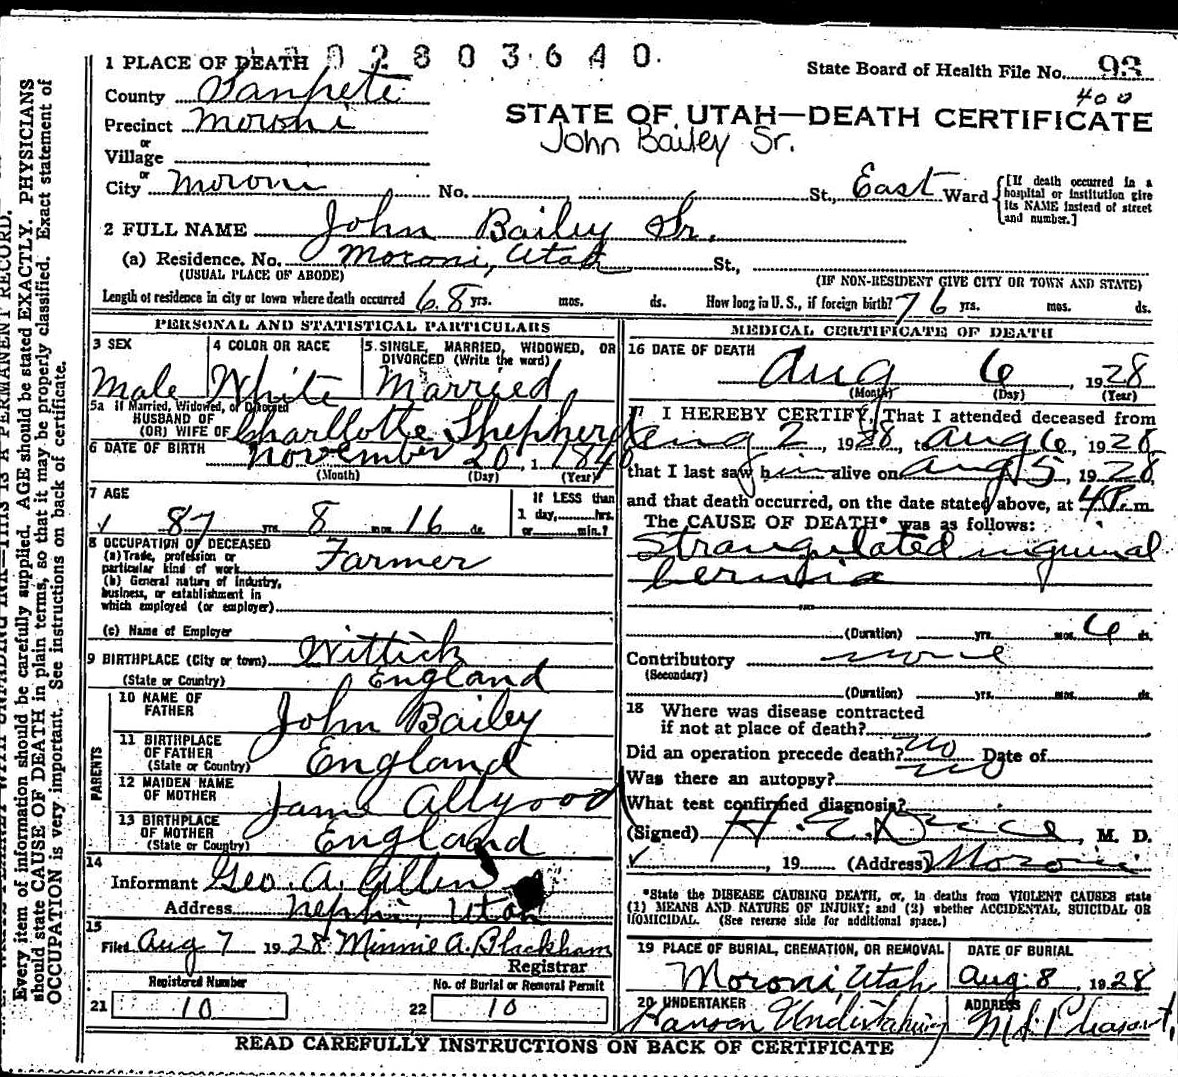 0 2 8 0 3 6 4 0
1 PLACE OF DEATH
State Board of Health File No. 93
400
County Sanpete
STATE OF UTAH—DEATH CERTIFICATE
Precinct Moroni
John Bailey Sr.
or
Village
or
City Moroni No. St., East Ward
[If death occurred in a
hospital or institution give
its NAME instead of street
and number.]
2 FULL NAME John Bailey Sr.
(a) Residence. No. Moroni, Utah St.,
(USUAL PLACE OF ABODE)
(IF NON-RESIDENT GIVE CITY OR TOWN AND STATE)
Length of residence in city or town where death occurred 68 yrs. mos. ds. How long in U. S., if foreign birth? 76 yrs. mos. ds.
PERSONAL AND STATISTICAL PARTICULARS
3 SEX
Male
4 COLOR OR RACE
White
5. SINGLE, MARRIED, WIDOWED, OR
DIVORCED (Write the word)
Married
5a If Married, Widowed, or Divorced
HUSBAND OF
(OR) WIFE OF Charllotte Shepherd
6 DATE OF BIRTH
November 20, 1840
(Month) (Day) (Year)
7 AGE
87 yrs. 8 mos. 16 ds.
If LESS than
1 day, hrs.
or min.?
8 OCCUPATION OF DECEASED
(a) Trade, profession or
particular kind of work Farmer
(b) General nature of industry,
business, or establishment in
which employed (or employer)
(c) Name of Employer
9 BIRTHPLACE (City or town) Wittich
(State or Country) England
PARENTS
10 NAME OF
FATHER John Bailey
11 BIRTHPLACE
OF FATHER
(State or Country) England
12 MAIDEN NAME
OF MOTHER Jane Allgood
13 BIRTHPLACE
OF MOTHER
(State or Country) England
14
Informant Geo. A. Allen
Address Nephi, Utah
15
Filed Aug 7 1928 Minnie A. Blackham
Registrar
Registered Number
21 10
No. of Burial or Removal Permit
22 10
MEDICAL CERTIFICATE OF DEATH
16 DATE OF DEATH
Aug 6, 1928
(Month) (Day) (Year)
I HEREBY CERTIFY, That I attended deceased from
Aug 2, 1928, to Aug 6, 1928,
that I last saw him alive on Aug 5, 1928,
and that death occurred, on the date stated above, at 4 P. m.
The CAUSE OF DEATH* was as follows:
Strangulated inguinal
hernia
(Duration) yrs. mos. 6 ds.
Contributory none
(Secondary)
(Duration) yrs. mos. ds.
18 Where was disease contracted
if not at place of death?
Did an operation precede death? no Date of
Was there an autopsy? no
What test confirmed diagnosis?
(Signed) M. D.
, 19 (Address) Moroni
*State the DISEASE CAUSING DEATH, or, in deaths from VIOLENT CAUSES state
(1) MEANS AND NATURE OF INJURY; and (2) whether ACCIDENTAL, SUICIDAL OR
HOMICIDAL. (See reverse side for additional space.)
19 PLACE OF BURIAL, CREMATION, OR REMOVAL
Moroni, Utah
DATE OF BURIAL
Aug. 8, 1928
20 UNDERTAKER
Hanson Undertaking
ADDRESS
Mt. Pleasant,
READ CAREFULLY INSTRUCTIONS ON BACK OF CERTIFICATE
Every item of information should be carefully supplied. AGE should be stated EXACTLY. PHYSICIANS
should state CAUSE OF DEATH in plain terms, so that it may be properly classified. Exact statement of
OCCUPATION is very important. See instructions on back of certificate.